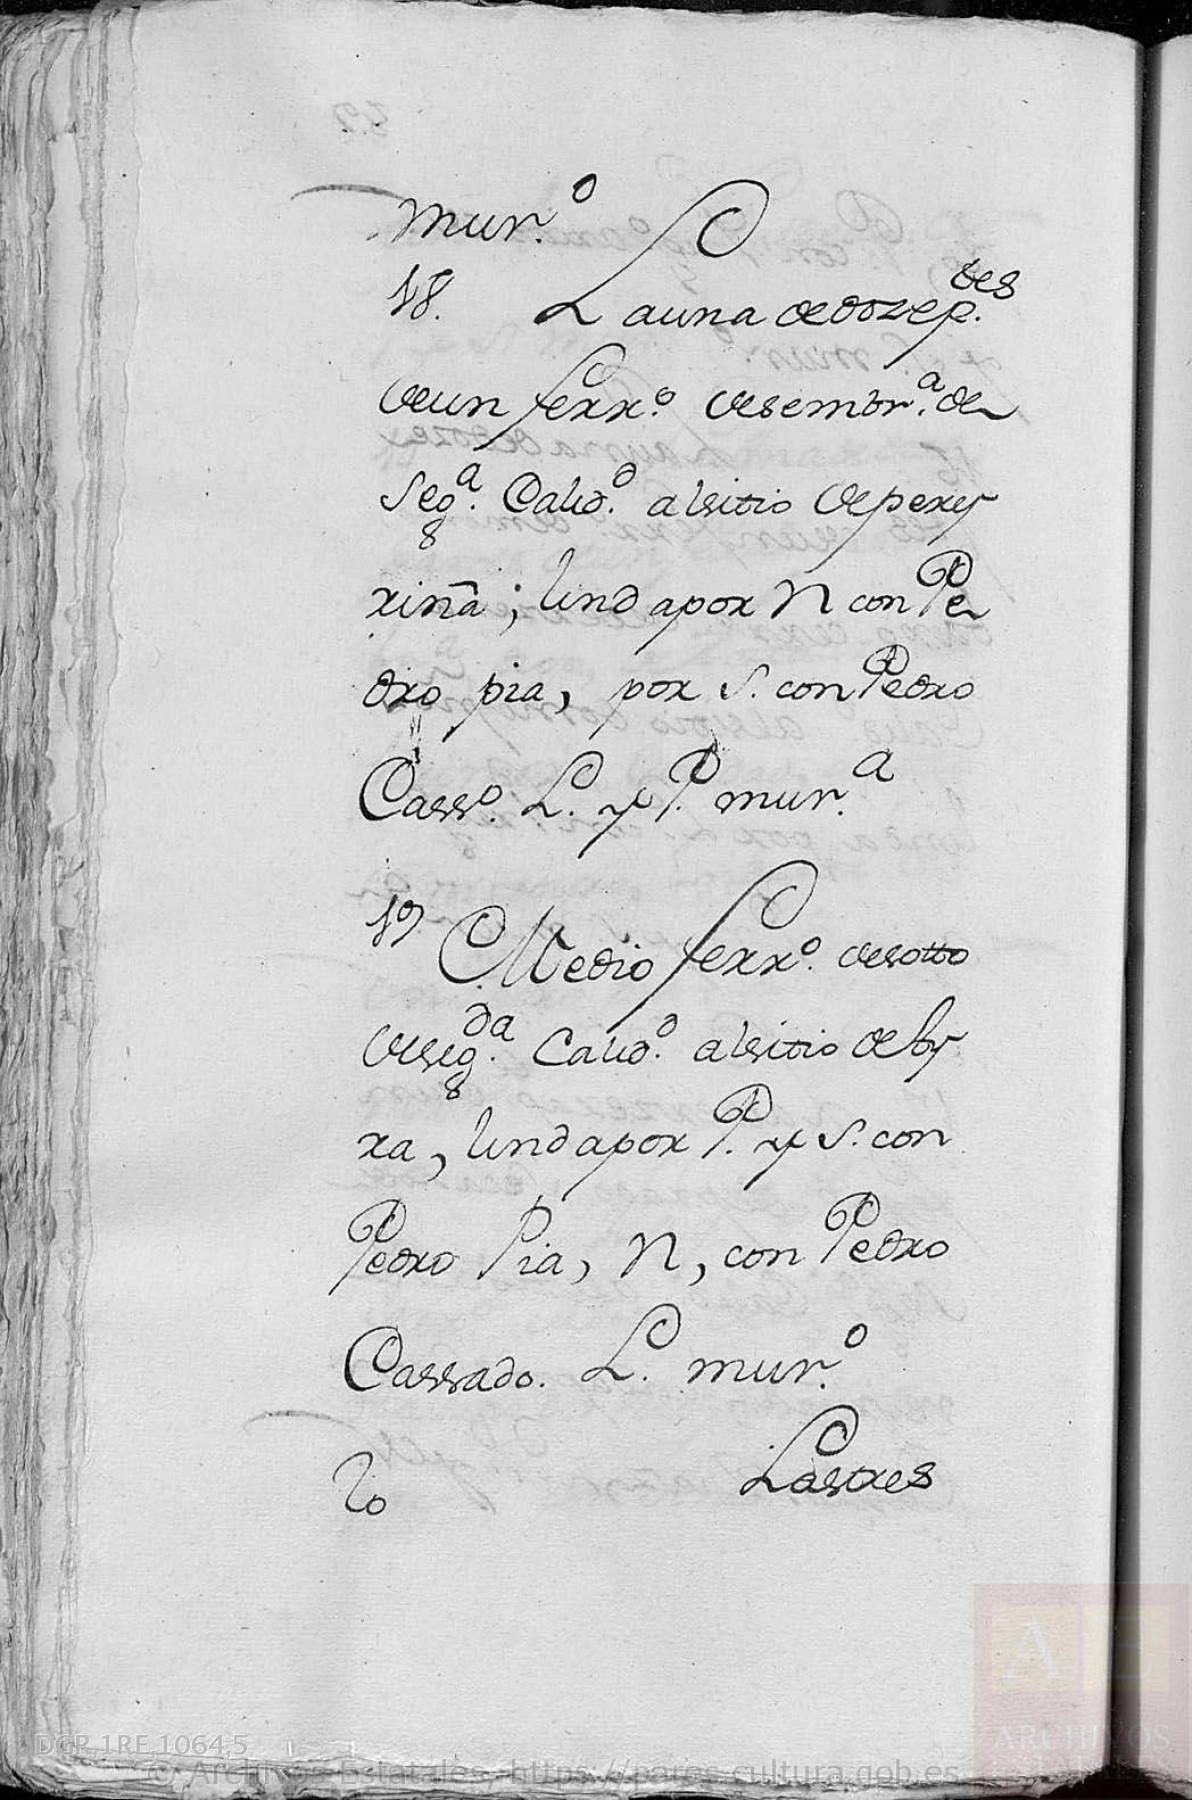 mur.º
18. La una de doze p.tes
de un ferr.º de sembr.a de
Seg.a Calid.d al sitio de perey
riña; linda por N con Pe
dro pia, por S. con Pedro
Cass.º L. y P. mur.a
19 Medio ferr.º de sotto
de seg.da Calid.d al sitio de
ra, linda por P. y S. con
Pedro Pia, N, con Pedro
Cassado. L. mur.º
20 Las tres
DGP,1RE,1064,5
© Archivos Estatales, https://pares.cultura.gob.es
AE
ARCHIVOS
ESTATALES